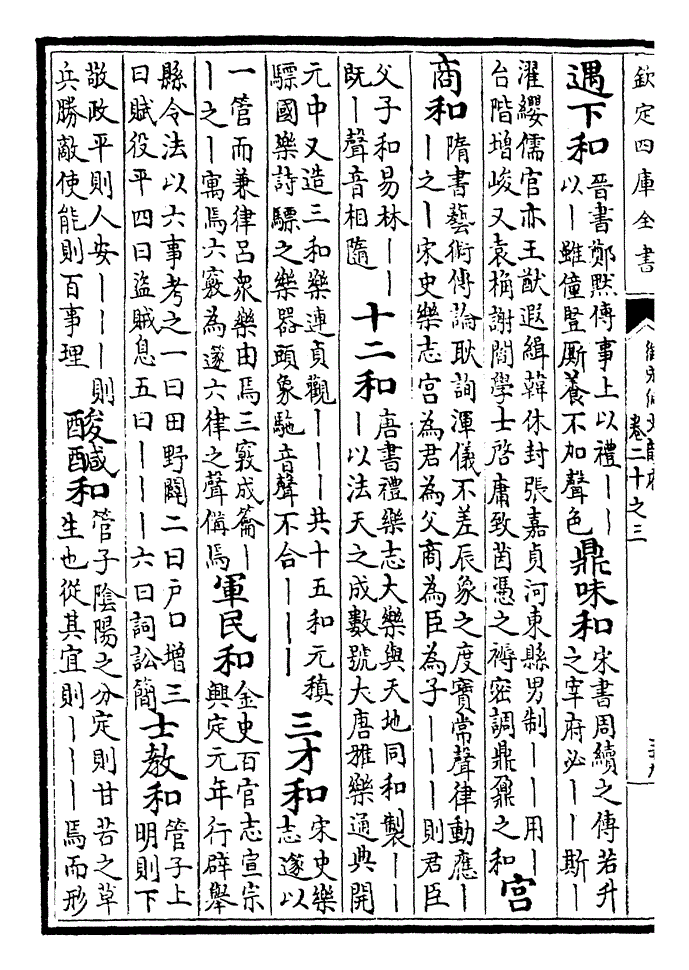 欽定四庫全書
卷二十之三
遇下和
晉書鄭默傳事上以禮丨丨
以丨雖僮豎厮養不加聲色
鼎味和
宋書周續之傳若升
之宰府必丨丨斯丨
濯纓儒官亦王猷遐緝韓休封張嘉貞河東縣男制丨丨丨用丨
台階增峻又袁桷謝閻學士啓庸致茵憑之褥密調鼎鼐之和
宮
商和
隋書藝術傳論耿詢渾儀不差辰象之度寶常聲律動應丨
丨之丨宋史樂志宮為君為父商為臣為子丨丨丨則君臣
父子和易林丨丨
既丨聲音相隨
十二和
唐書禮樂志大樂與天地同和製丨丨
丨以法天之成數號大唐雅樂通典開
元中又造三和樂連貞觀丨丨丨共十五和元稹
驃國樂詩驃之樂器頭象駞音聲不合丨丨丨
三才和
宋史樂
志遂以
一管而兼律呂衆樂由焉三竅成籥丨
丨之丨寓焉六竅為篴六律之聲備焉
軍民和
金史百官志宣宗
興定元年行辟舉
縣令法以六事考之一曰田野闢二曰户口增三
曰賦役平四曰盜賊息五曰丨丨丨六曰詞訟簡
士教和
管子上
明則下
敬政平則人安丨丨丨則
兵勝敵使能則百事理
酸鹹和
管子隂陽之分定則甘苦之草
生也從其宜則丨丨丨焉而形